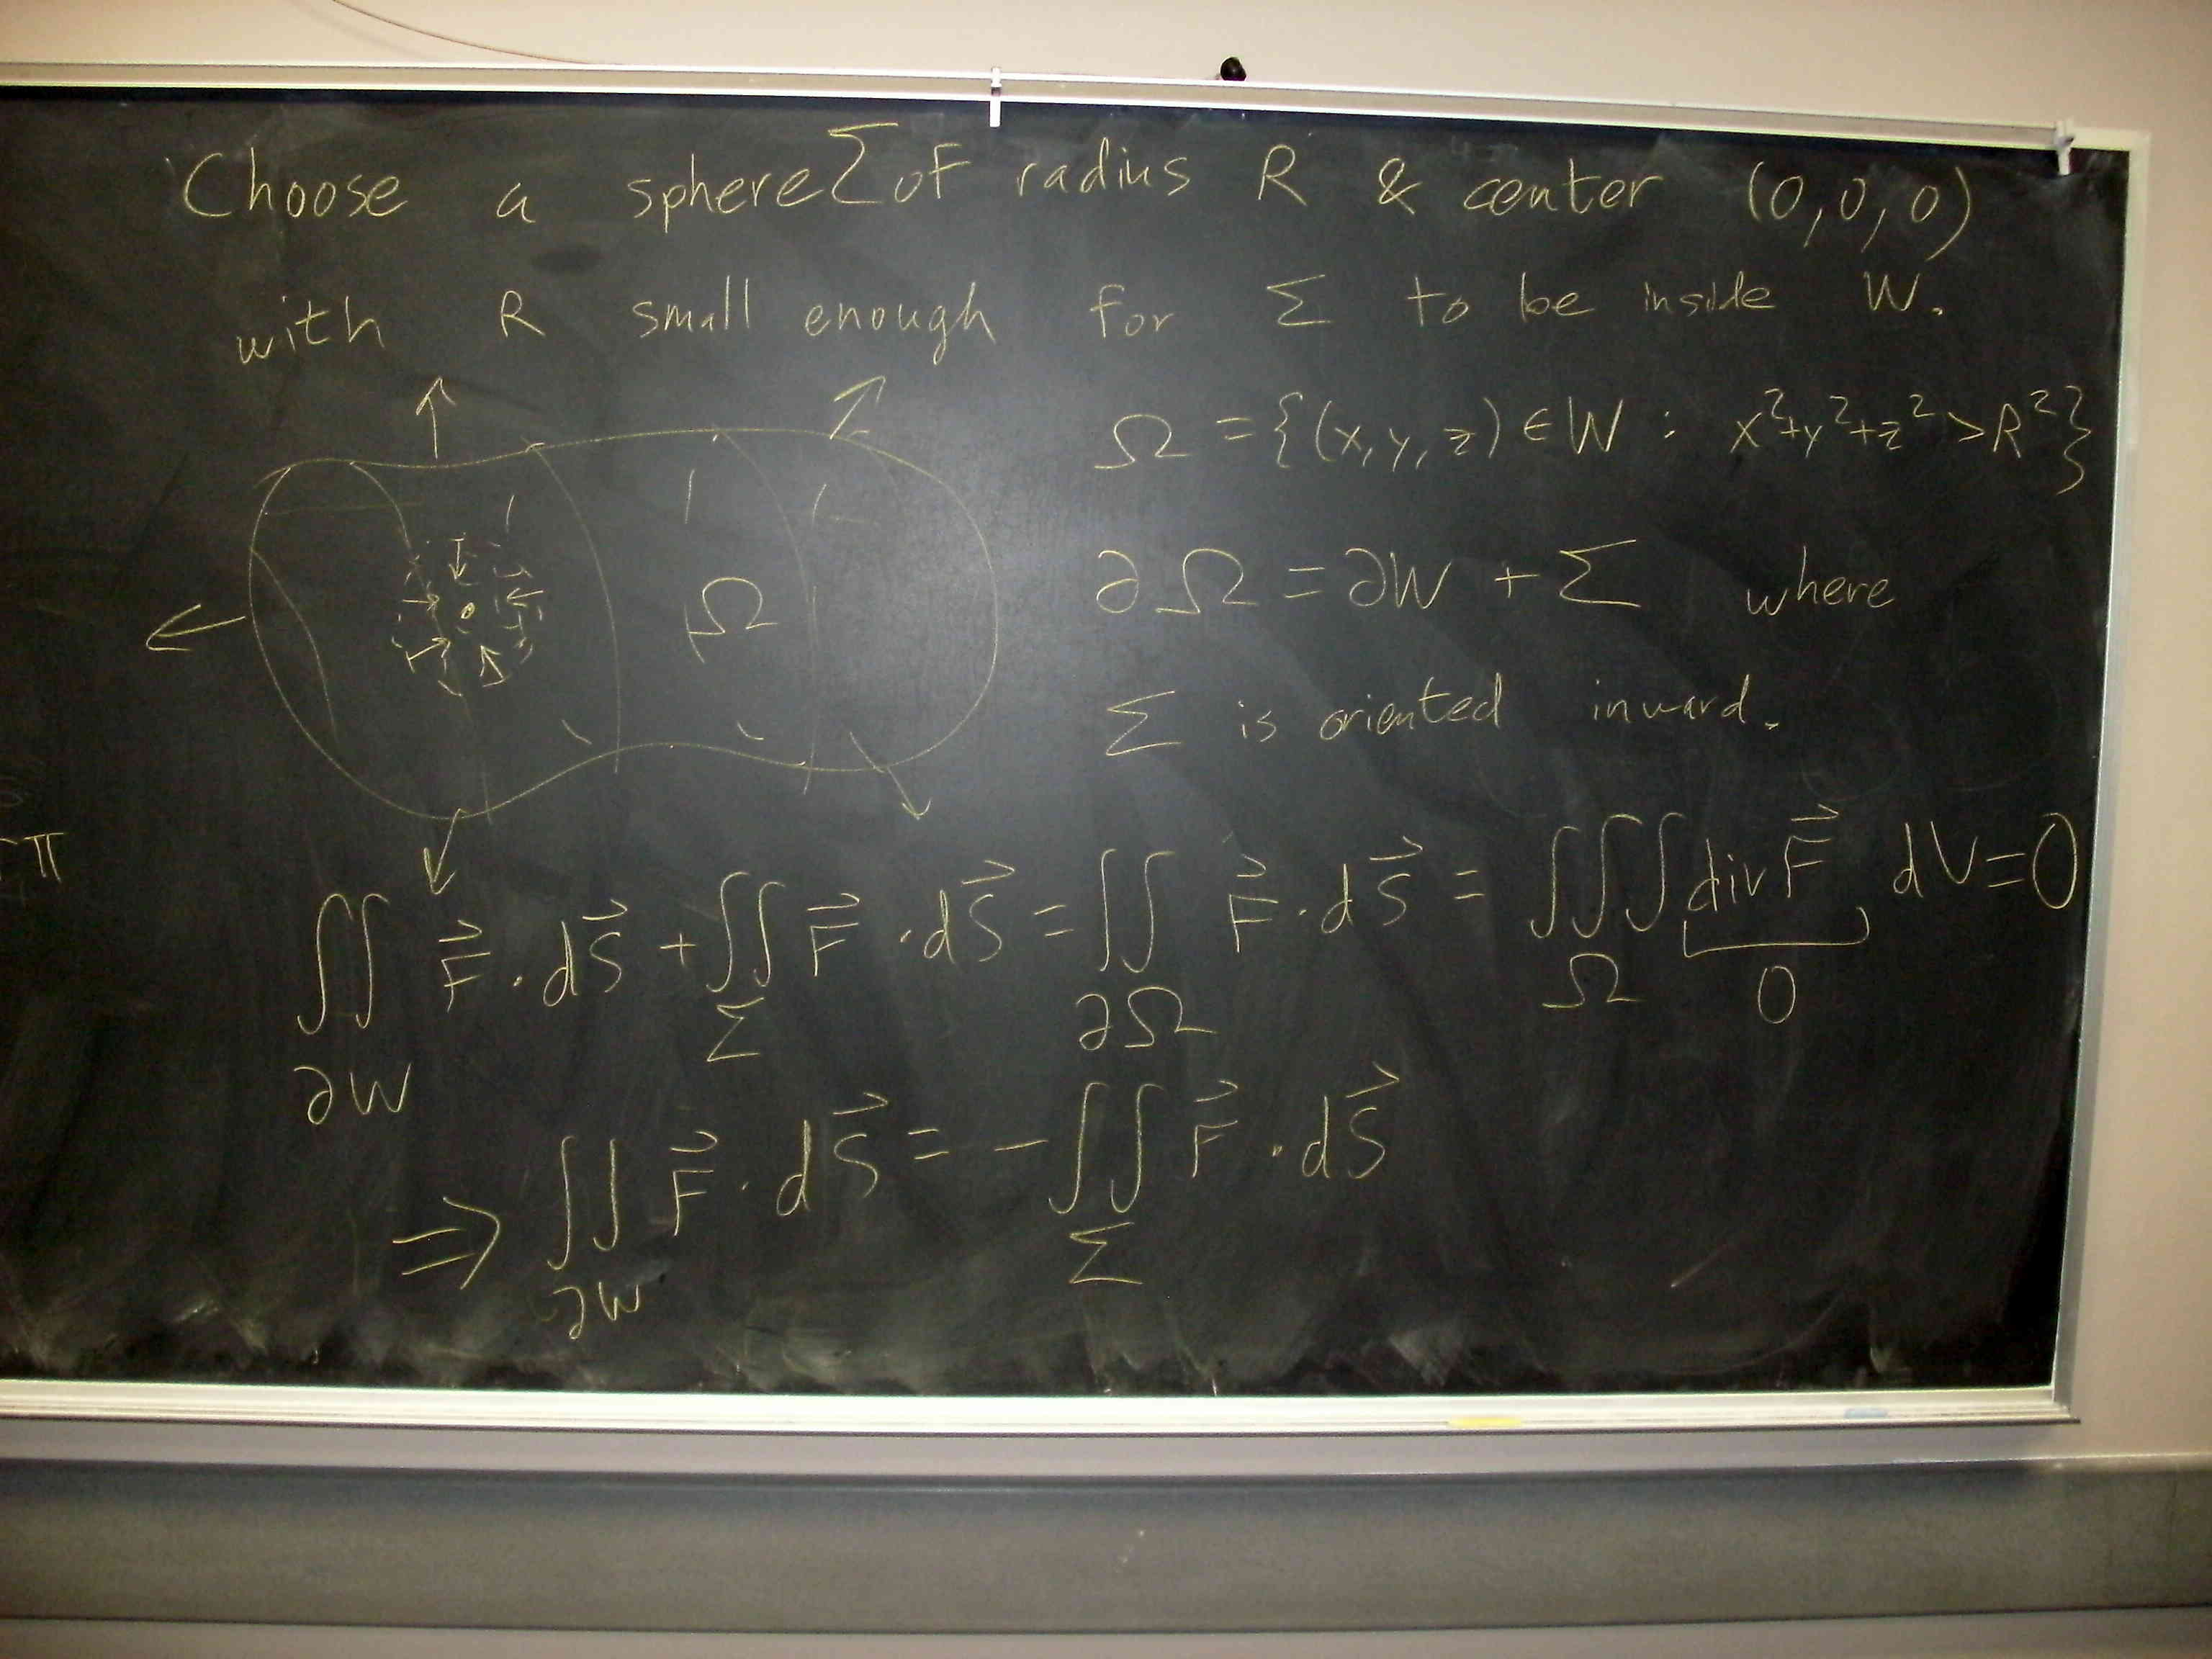 Choose a sphere Σ of radius R & center (0,0,0)
with R small enough for Σ to be inside W.
Ω = {(x,y,z) ∈ W : x²+y²+z² > R²}
0
Ω
∂Ω = ∂W + Σ where
Σ is oriented inward.
π
∬_∂W F⃗ · dS⃗ + ∬_Σ F⃗ · dS⃗ = ∬_∂Ω F⃗ · dS⃗ = ∭_Ω div F⃗ dV = 0
0
⇒ ∬_∂W F⃗ · dS⃗ = - ∬_Σ F⃗ · dS⃗